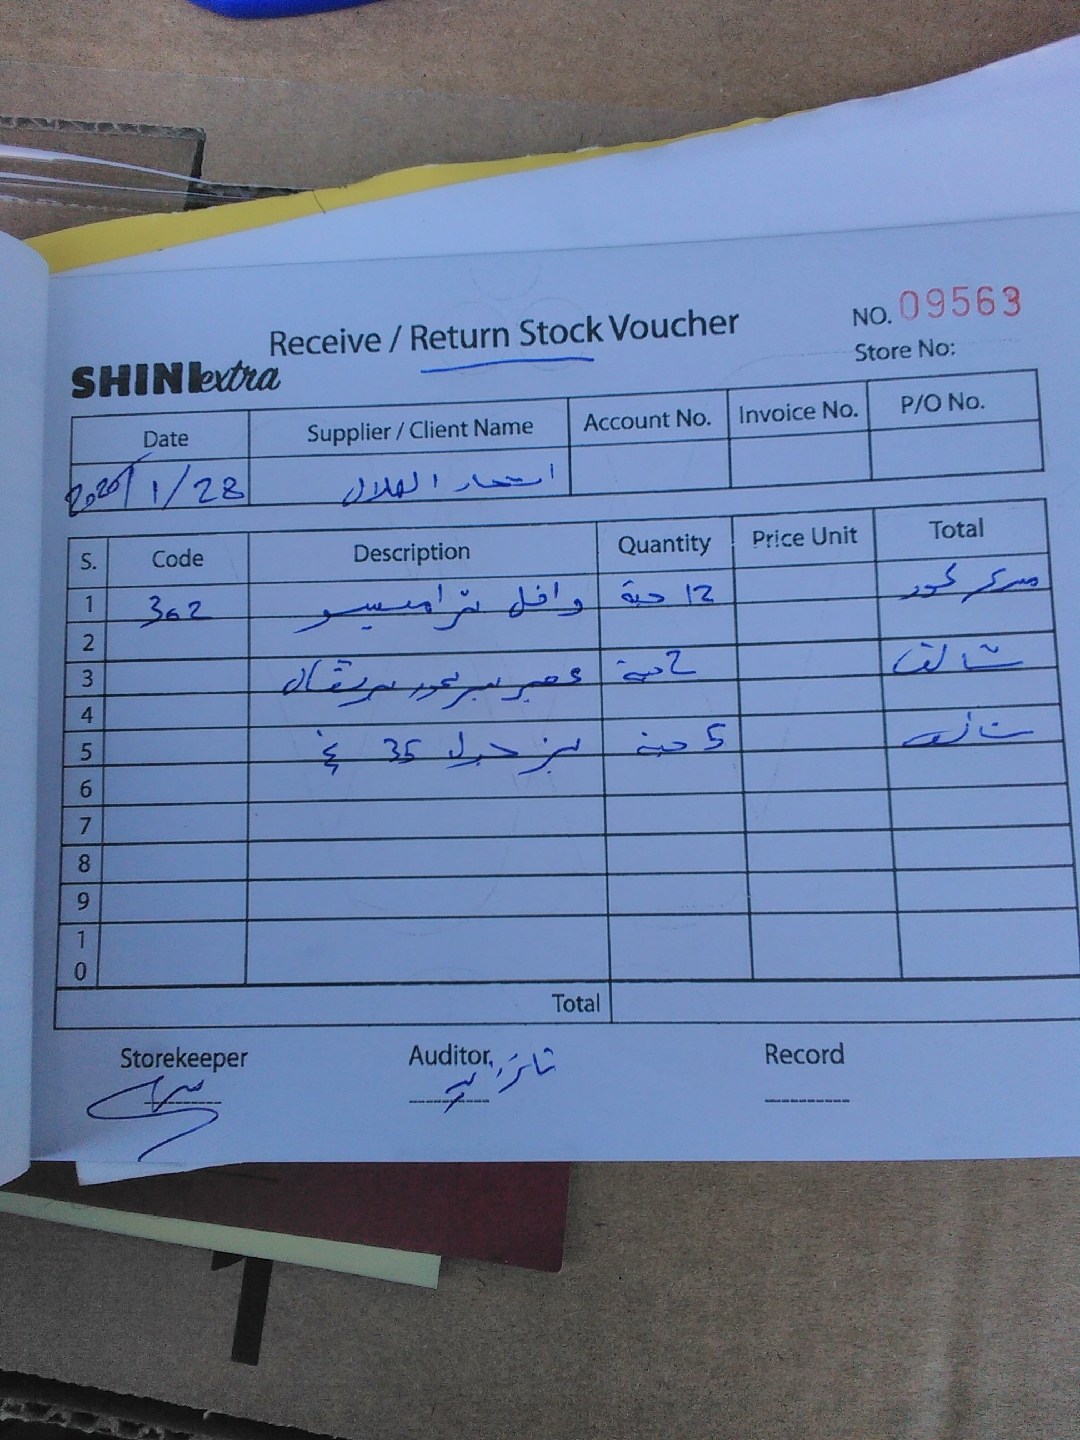 Receive / Return Stock Voucher
NO. 09563
SHINI extra
Store No:
Date Supplier / Client Name Account No. Invoice No. P/O No.
2020/1/28 الهلال
S. Code Description Quantity Price Unit Total
1 362 وافل تراميسو 12 حبة
2
3 عصير برتقال 2 حبة تالف
4
5 35 غ 5 حبة تالف
6
7
8
9
10
Total
Storekeeper Auditor Record